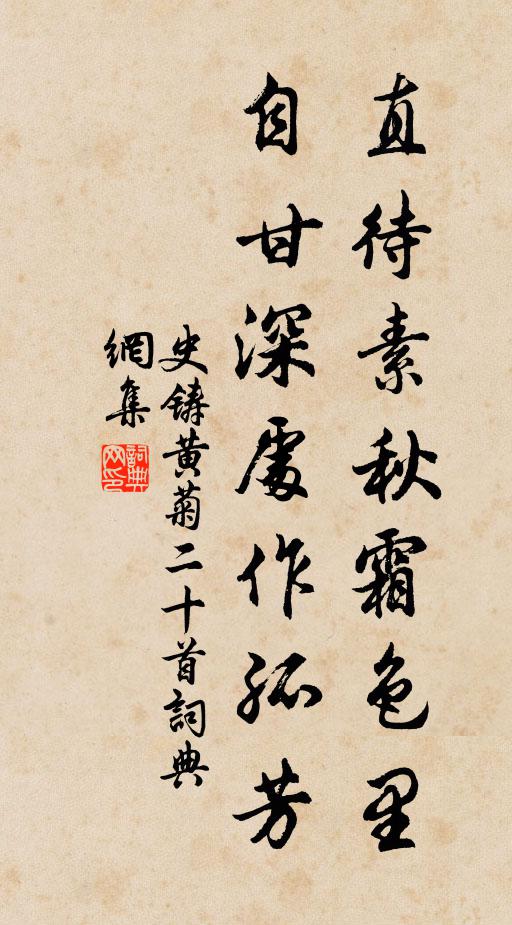 直待素秋霜色里
自甘深處作孤芳
史鑄黄菊二十首詞典
網集
詞典网印